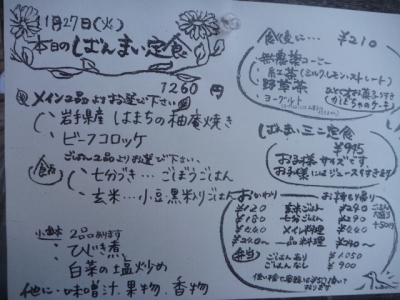 1月27日(火)
本日のしばんまい定食
1260円
メイン2品よりお選び下さい
・岩手県産 はまちの柚庵焼き
・ビーフコロッケ
ごはん2品よりお選び下さい、
・七分づき…ごぼうごはん
・玄米…小豆黒米入りごはん
小鉢 2品あります
・ひじき煮
・白菜の塩炒め
他に・味噌汁、果物、香物
食後に… ¥210
・無農薬コーヒー
・紅茶(ミルク・レモン・ストレート)
・野草茶
・ヨーグルト
(かぼちゃのケーキ)
しばんまいミニ定食
¥945
お子様サイズです
お子様にはジュースつきます
おかわり お持ち帰り
¥120 玄米ごはん ¥240
¥180 七分ごはん ¥290
¥440 メイン料理 ¥440
¥240〜 一品料理 ¥240〜
弁当 ごはんあり ¥1050
ごはんなし ¥900